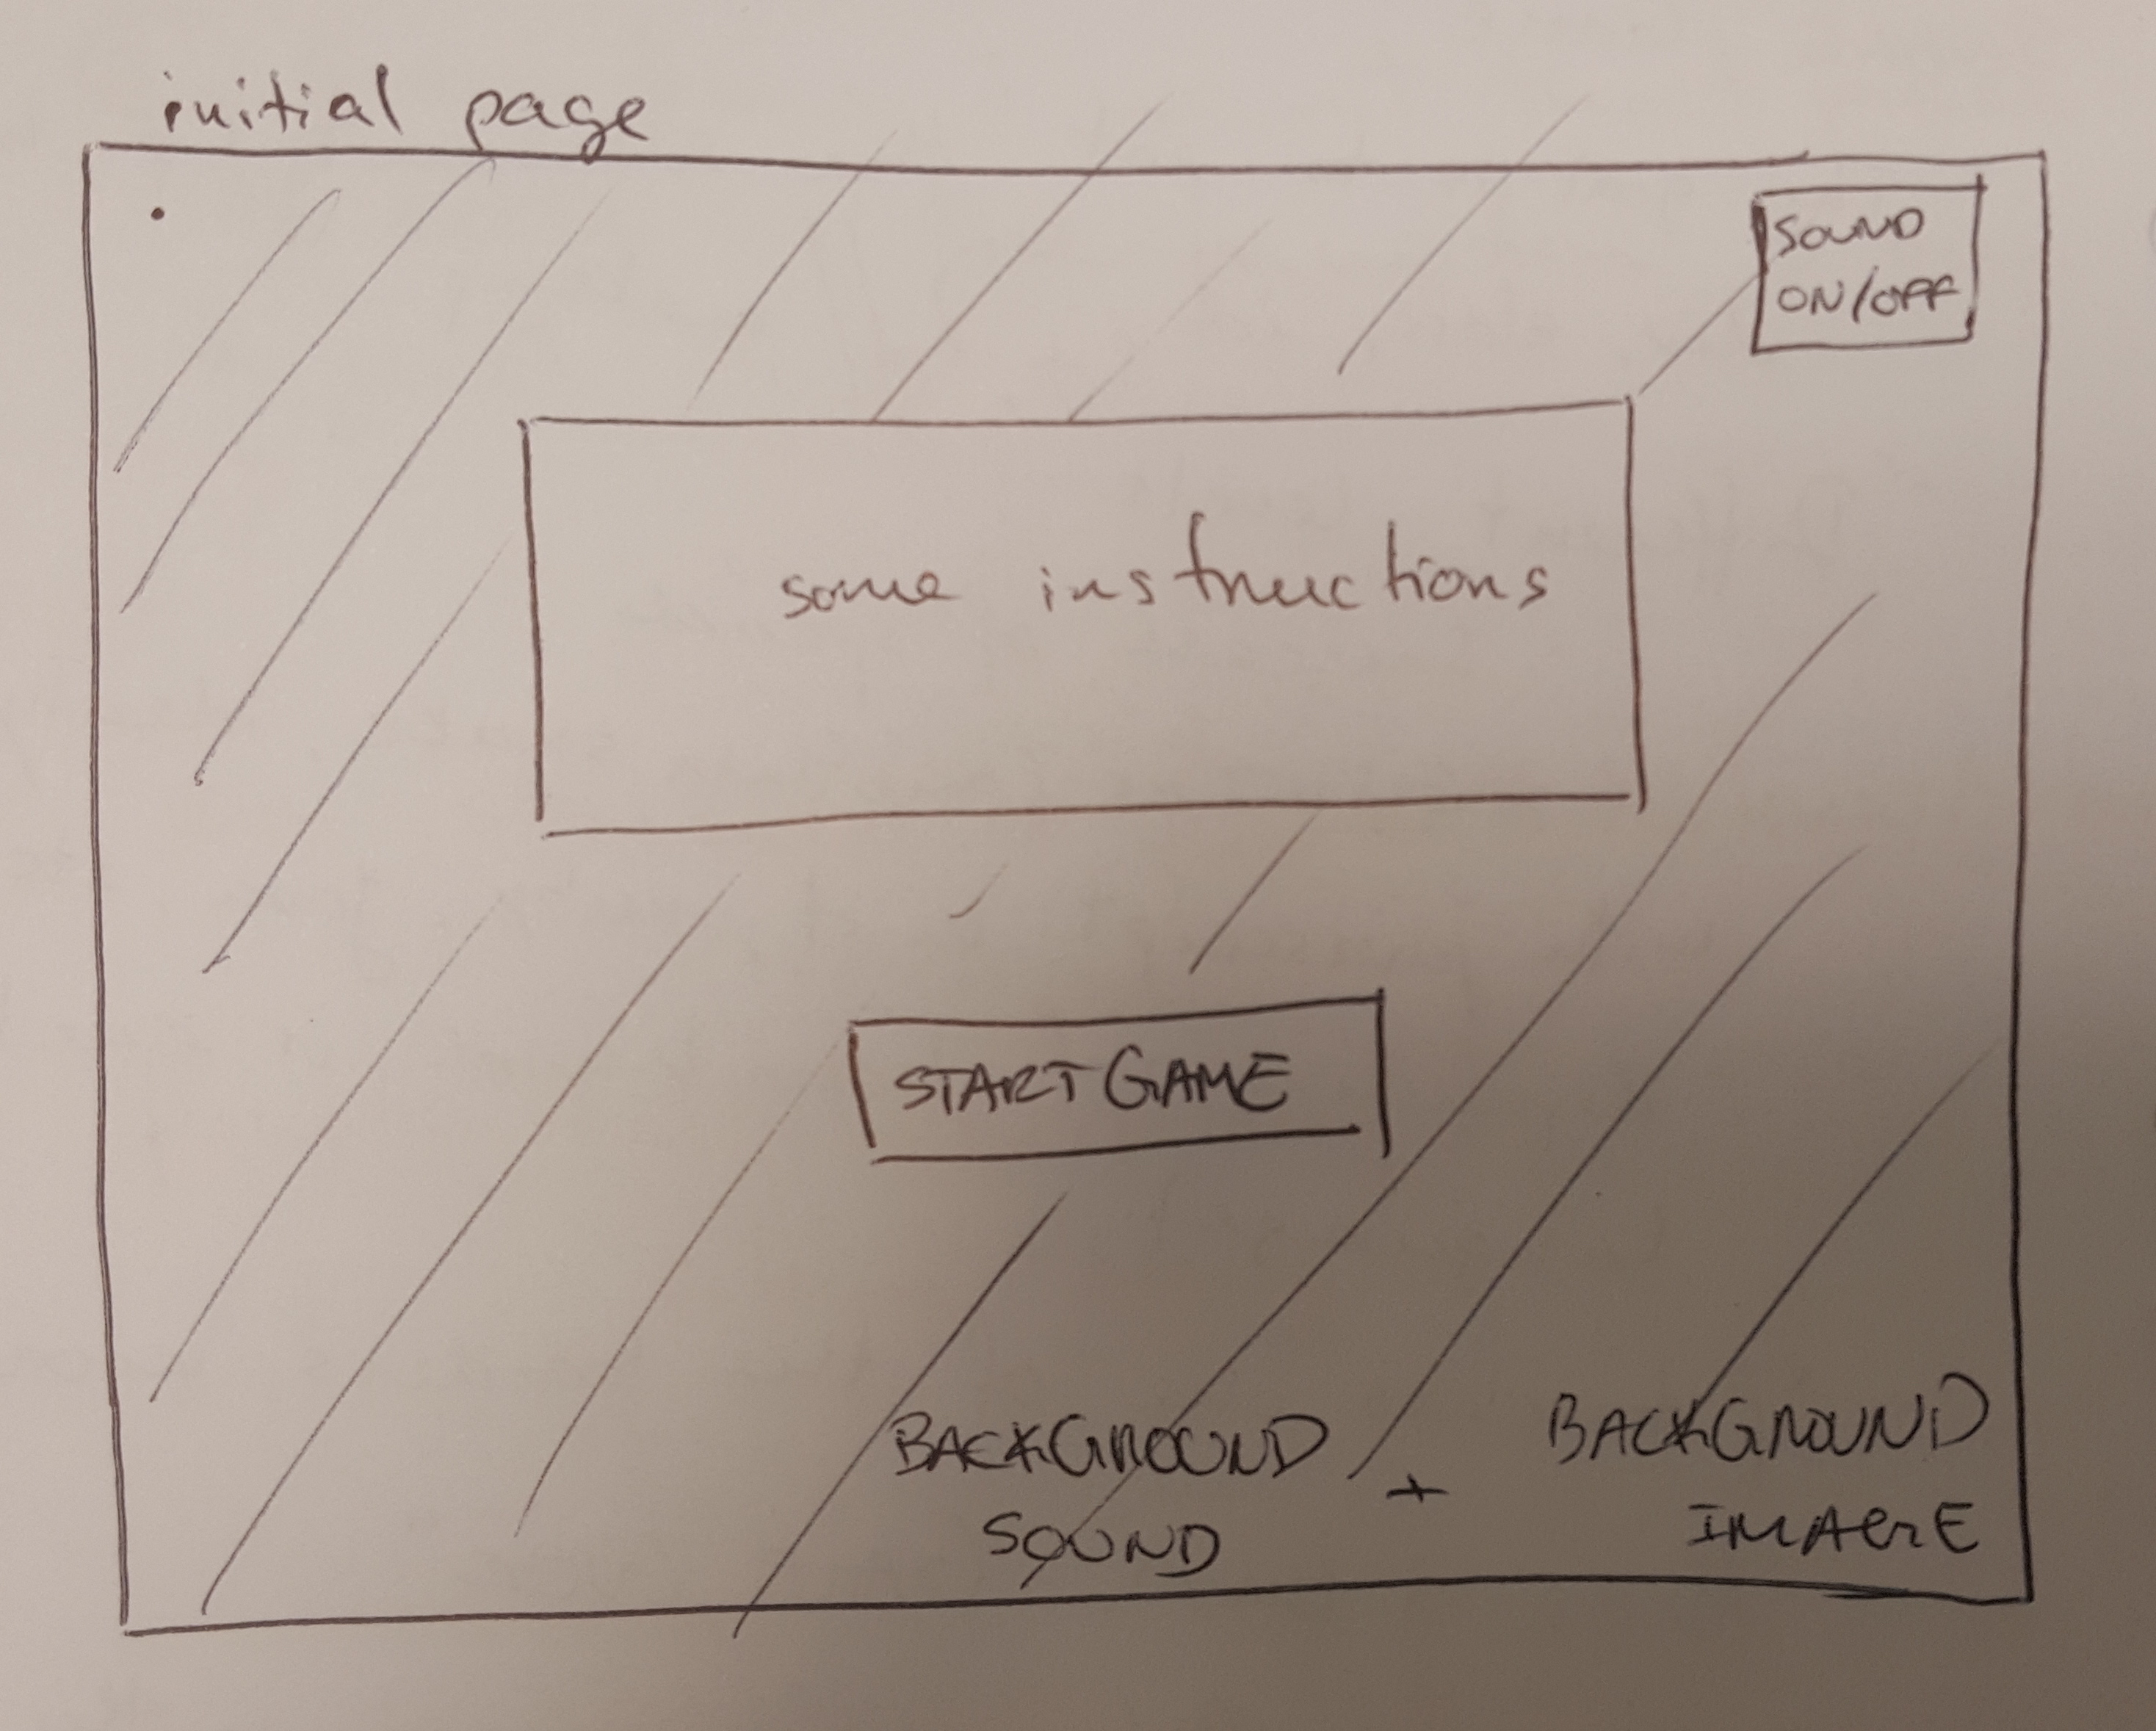 initial page
SOUND
ON/OFF
some instructions
START GAME
BACKGROUND
SOUND
+
BACKGROUND
IMAGE